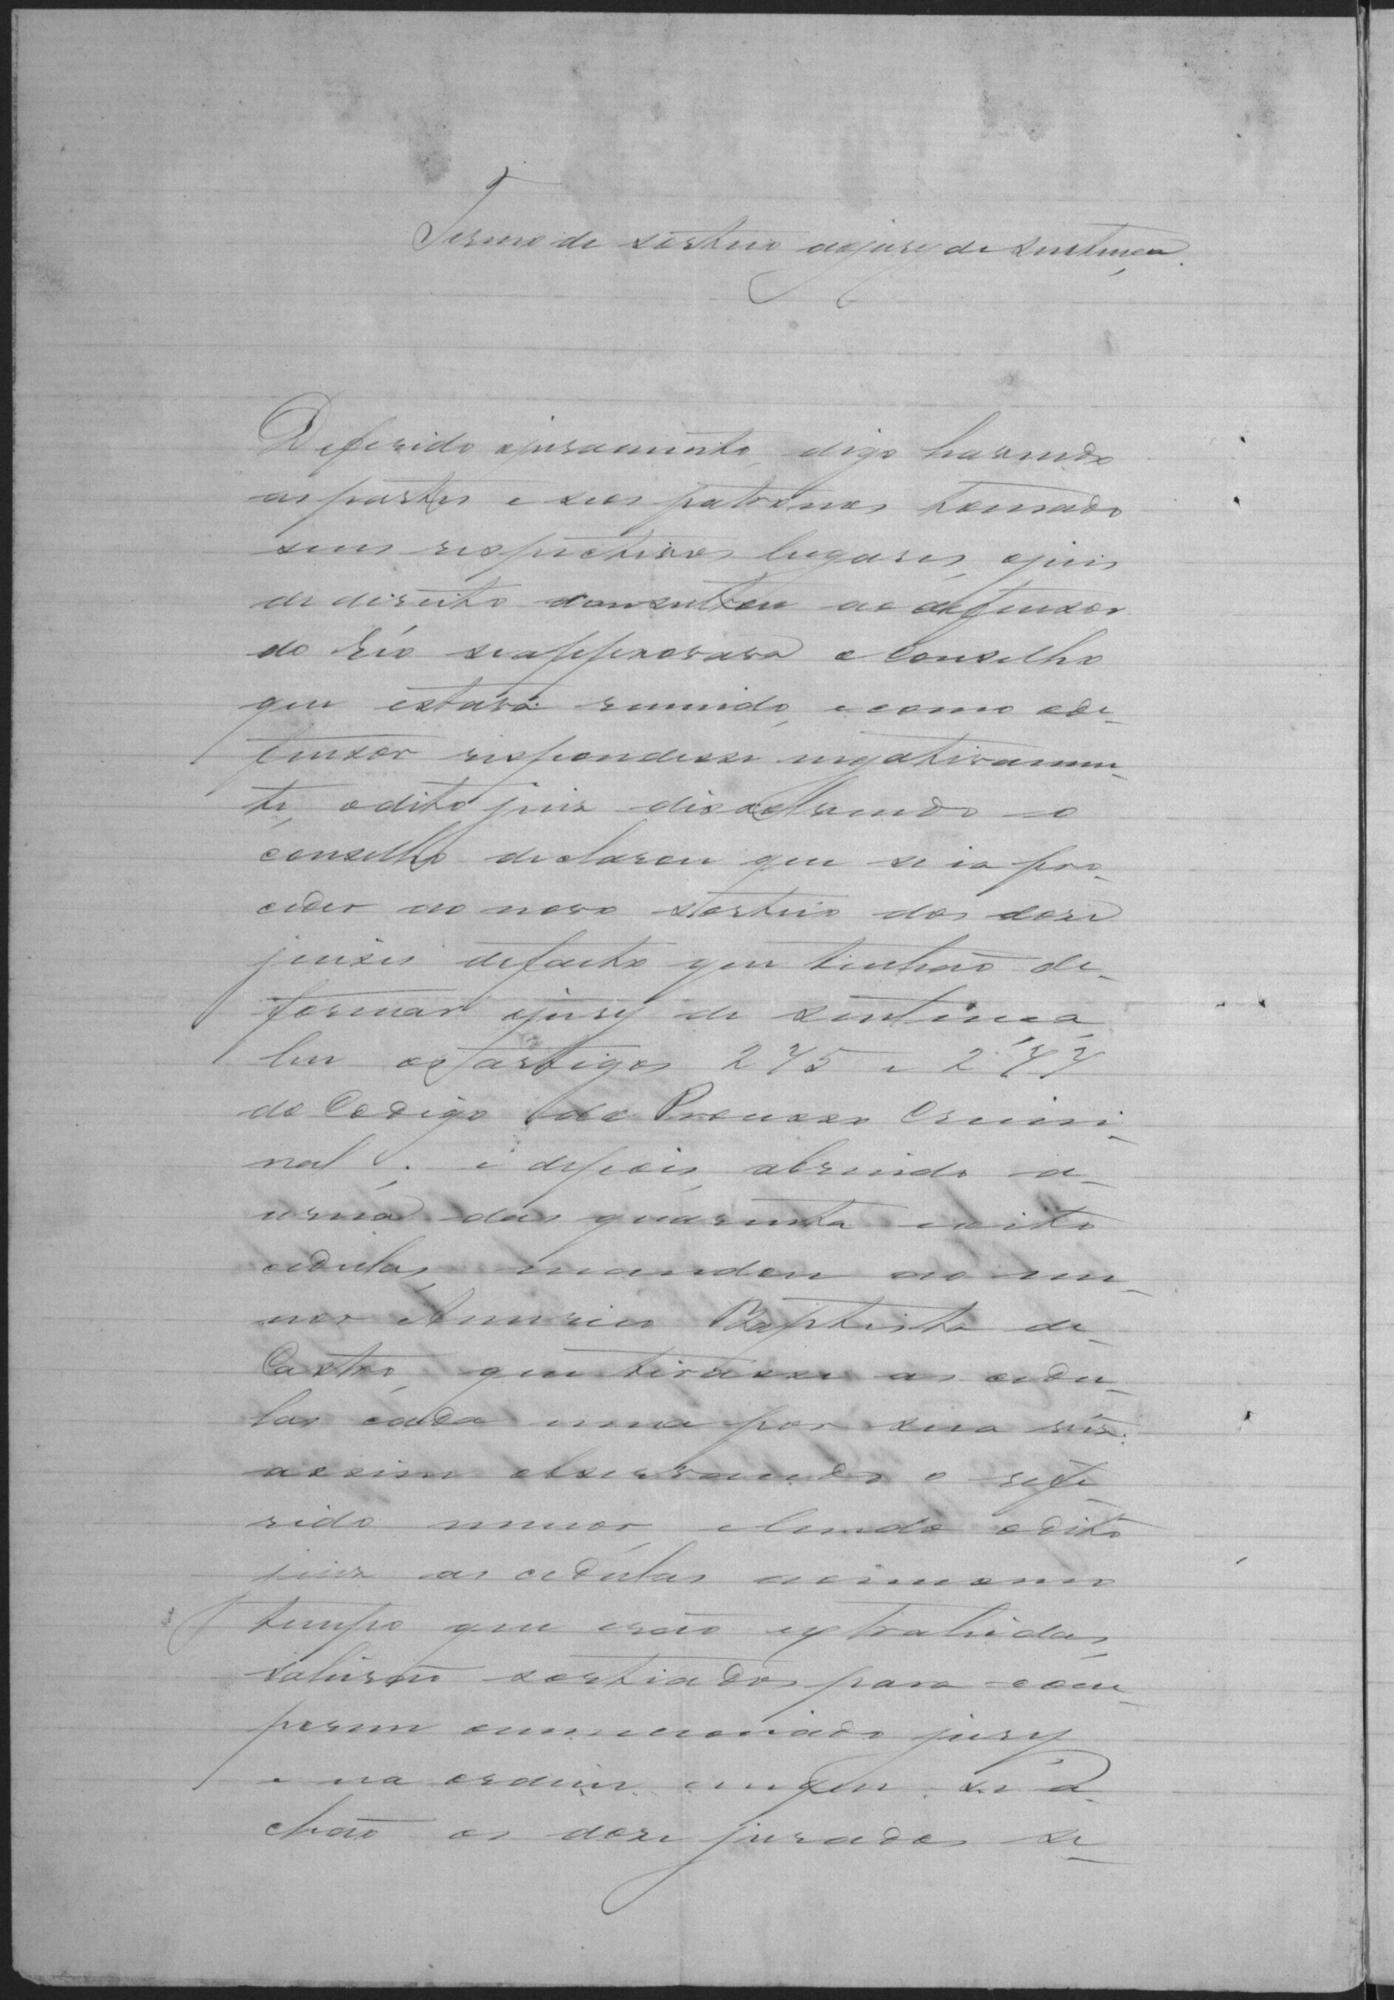 Termo de sorteio do jury de sentença.
Deferido o juramento, digo havendo
as partes e seos patronos tomado
seus respectivos lugares, o juis
de direito consultou ao defensor
do Réo se approvava o Conselho
que estava reunido, e como o de-
fensor respondesse negativamen-
te, o dito juiz dissolvendo o
conselho declarou que se ia pro-
ceder ao novo sorteio dos doze
juizes de facto que tinhão de
formar o jury de sentença,
leu os artigos 275 e 277
do Codigo do Processo Crimi-
nal; e depois, abrindo a
urna das quarenta e oito
cedulas, mandou ao me-
nor Americo Baptista de
Castro, que tirasse as cedu-
las cada uma por sua vez:
assim observando o refe
rido menor, e lendo o dito
juiz as cedulas ao mesmo
tempo que erão extrahidas,
sahirão sorteados para com-
porem o mencionado jury
e na ordem em que se a-
chão os doze jurados se-